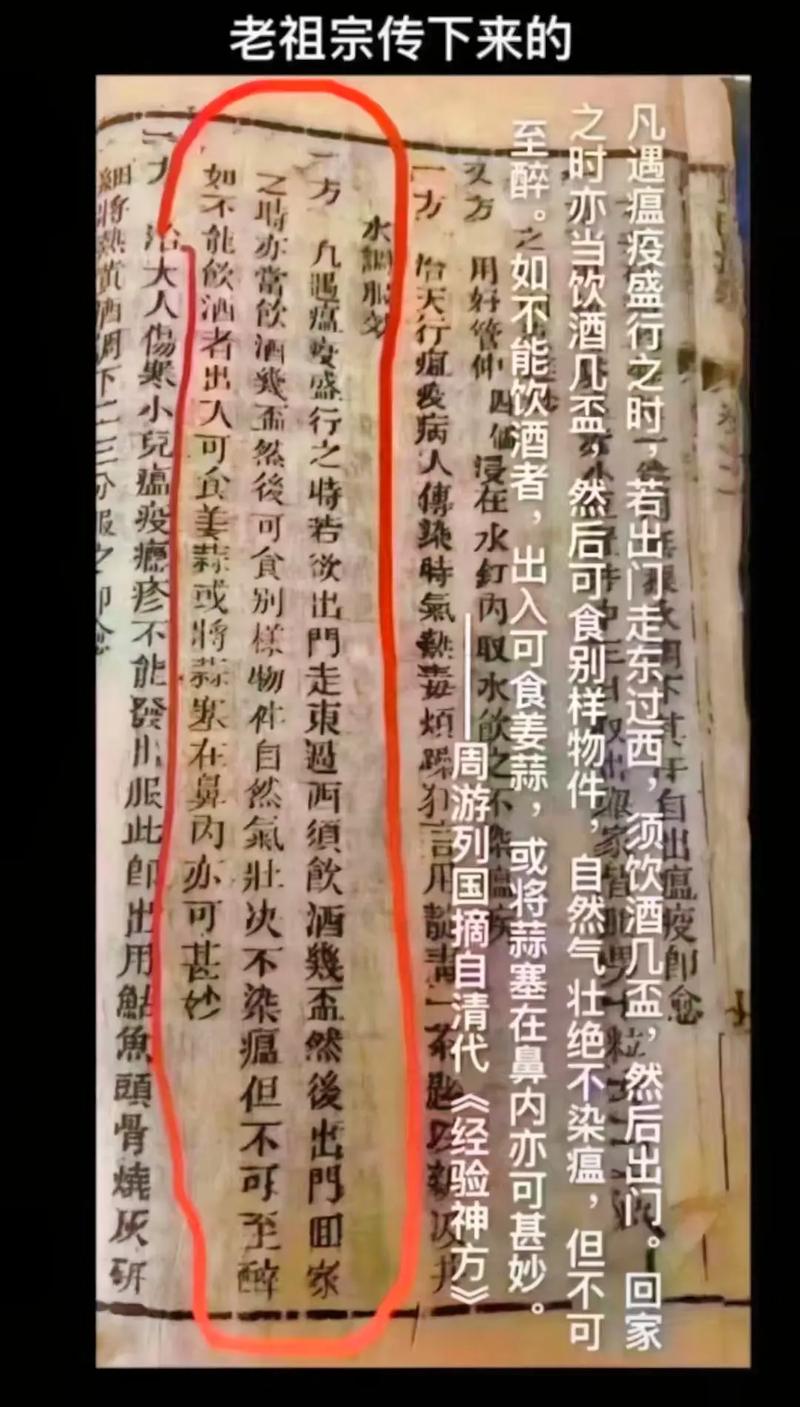 老祖宗传下来的
凡遇瘟疫盛行之时，若出门走东过西，须饮酒几盃，然后出门。回家
之时亦当饮酒几盃，然后可食别样物件，自然气壮绝不染瘟，但不可
至醉。如不能饮酒者，出入可食姜蒜，或将蒜塞在鼻内亦可甚妙。
——周游列国摘自清代《经验神方》
自出瘟疫即愈
又方 用好管仲四個浸在水缸内取水飲之不染瘟疾
一方 治天行瘟疫病人傳染時氣熱毒煩躁狂言用靛青一茶匙以新汲井
水調服效
一方 凡遇瘟疫盛行之時若欲出門走東過西須飲酒幾盃然後出門回家
之時亦當飲酒幾盃然後可食別樣物件自然氣壯决不染瘟但不可至醉
如不能飲酒者出入可食姜蒜或將蒜塞在鼻内亦可甚妙
一方 治大人傷寒小兒瘟疫癮疹不能發出服此即出用鮎魚頭骨燒灰研
細將熱黄酒調下二三分服之即愈